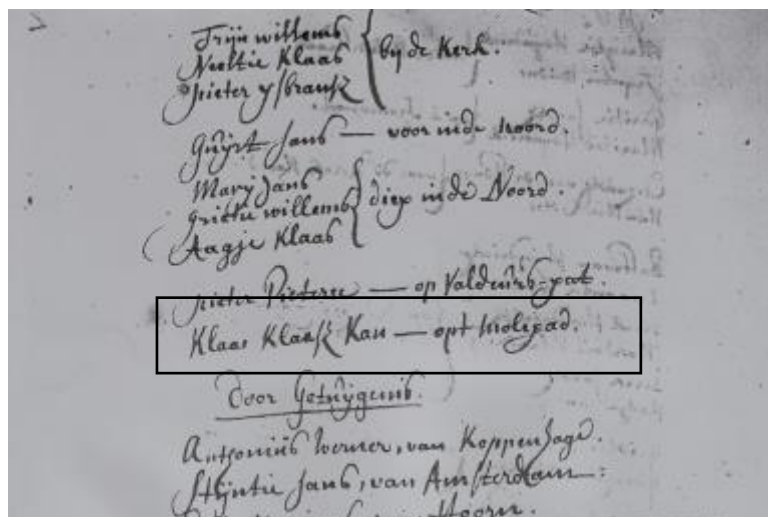 Trijn willems
Neeltie Klaas
pieter ysbrantz
bij de Kerk.
Guijrt Jans — voor in de noord.
Marij Jans
grietie willems
Aagje Klaas
diep in de Noord.
pieter Pieterse — op Valdeurs-pat.
Klaas Klaasz Kan — opt molepad.
Door Getuijgenis.
Antonius Werner, van Koppenhage.
Stijntie Jans, van Amsterdam:
Hoorn.